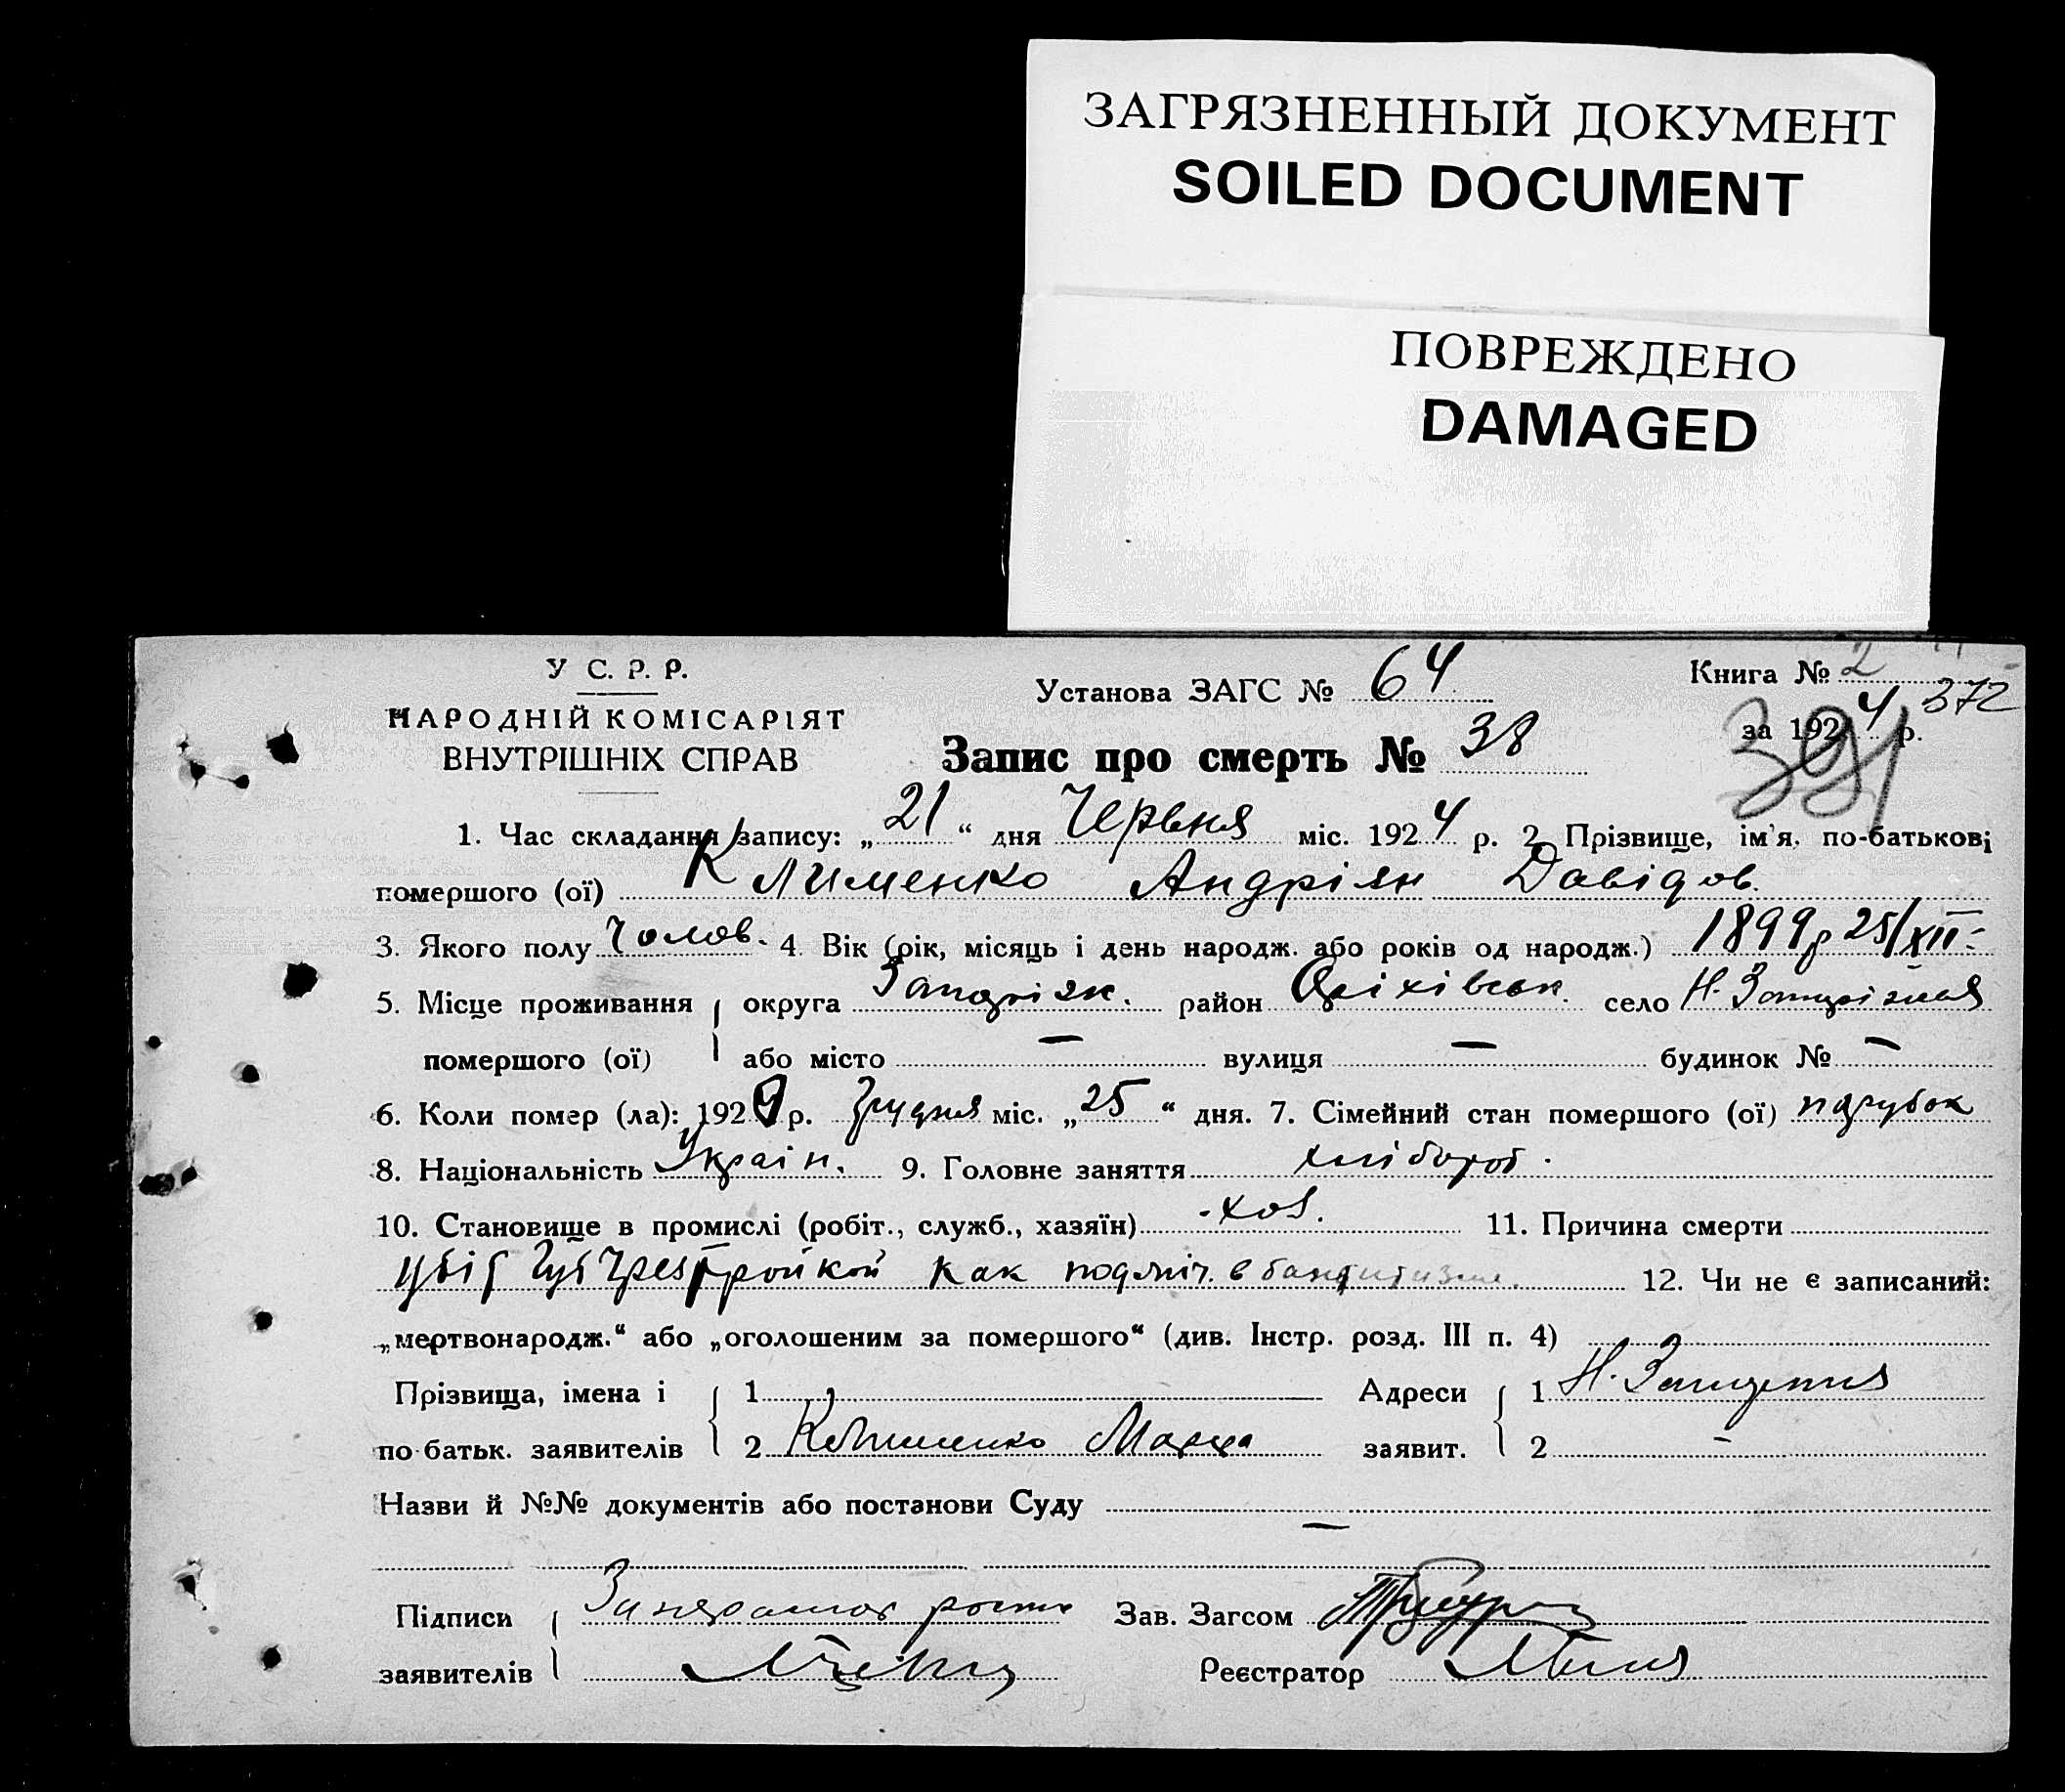 ЗАГРЯЗНЕННЫЙ ДОКУМЕНТ
SOILED DOCUMENT
ПОВРЕЖДЕНО
DAMAGED
У С. Р. Р.
НАРОДНІЙ КОМІСАРІЯТ
ВНУТРІШНІХ СПРАВ
Установа ЗАГС № 64
Книга № 2
372
за 1924 р.
391
Запис про смерть № 38
1. Час складання запису: „21“ дня Червня міс. 1924 р. 2. Прізвище, ім'я, по-батькові
помершого (ої) Клименко Андріян Давідов.
3. Якого полу Чолов. 4. Вік (рік, місяць і день народж. або років од народж.) 1899р 25/XII
5. Місце проживання округа Запоріжк. район Оріхівськ. село Н.
помершого (ої) або місто — вулиця — будинок № —
6. Коли помер (ла): 192 р. Грудня міс. „25“ дня. 7. Сімейний стан помершого (ої) парубок
8. Національність Україн. 9. Головне заняття хлібороб.
10. Становище в промислі (робіт., служб., хазяїн) хоз. 11. Причина смерти
убіт тройкой как в бандитизме. 12. Чи не є записаний:
„мертвонародж.“ або „оголошеним за помершого“ (див. Інстр. розд. III п. 4)
Прізвища, імена і 1 Адреси 1 Н.
по батьк. заявителів 2 Клименко Марфа заявит. 2 –
Назви й №№ документів або постанови Суду
—
Підписи Зав. Загсом
заявителів Реєстратор